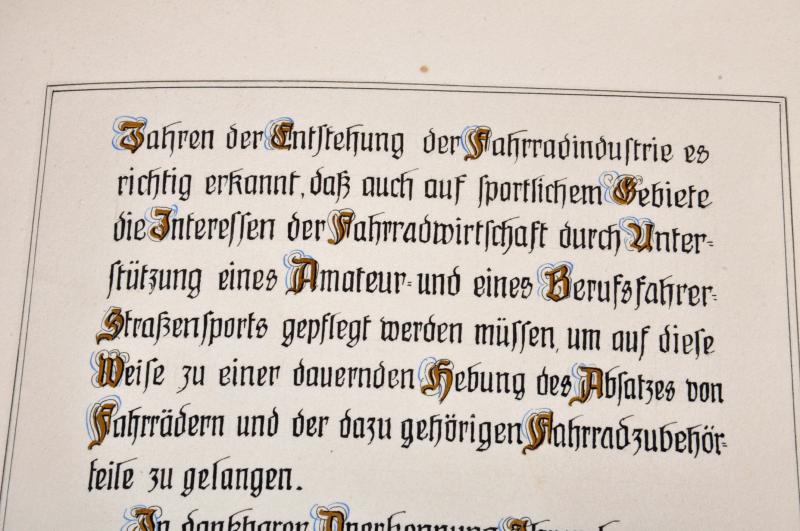 Jahren der Entstehung der Fahrradindustrie es
richtig erkannt, daß auch auf sportlichem Gebiete
die Interessen der Fahrradwirtschaft durch Unter-
stützung eines Amateur- und eines Berufsfahrer-
Straßensports gepflegt werden müssen, um auf diese
Weise zu einer dauernden Hebung des Absatzes von
Fahrrädern und der dazu gehörigen Fahrradzubehör-
teile zu gelangen.
In dankbarer Anerkennung